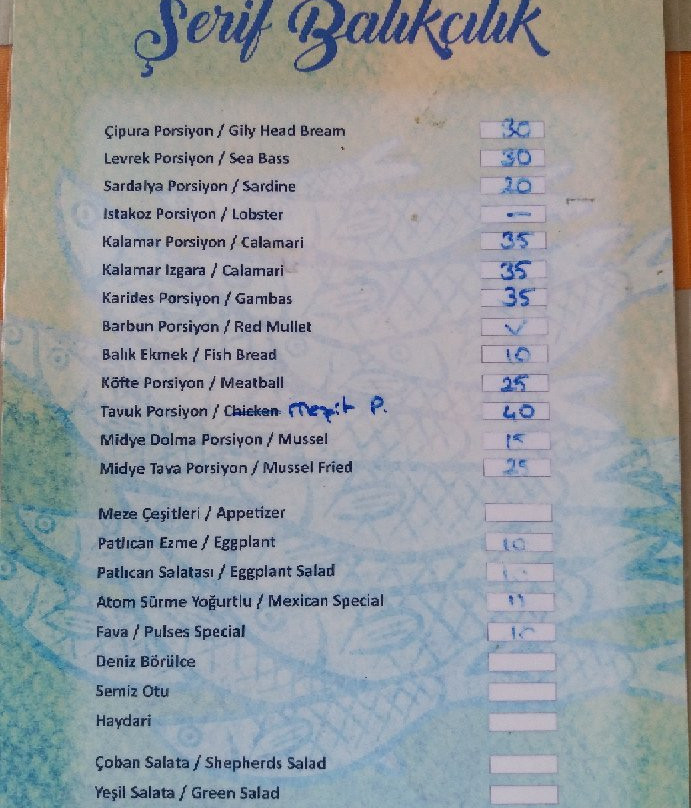 Şerif Balıkçılık
Çipura Porsiyon / Gily Head Bream 30
Levrek Porsiyon / Sea Bass 30
Sardalya Porsiyon / Sardine 20
Istakoz Porsiyon / Lobster —
Kalamar Porsiyon / Calamari 35
Kalamar Izgara / Calamari 35
Karides Porsiyon / Gambas 35
Barbun Porsiyon / Red Mullet
Balık Ekmek / Fish Bread 10
Köfte Porsiyon / Meatball 25
Tavuk Porsiyon / Chicken Mezgit P. 40
Midye Dolma Porsiyon / Mussel 15
Midye Tava Porsiyon / Mussel Fried 25
Meze Çeşitleri / Appetizer
Patlıcan Ezme / Eggplant 10
Patlıcan Salatası / Eggplant Salad
Atom Sürme Yoğurtlu / Mexican Special
Fava / Pulses Special 10
Deniz Börülce
Semiz Otu
Haydari
Çoban Salata / Shepherds Salad
Yeşil Salata / Green Salad